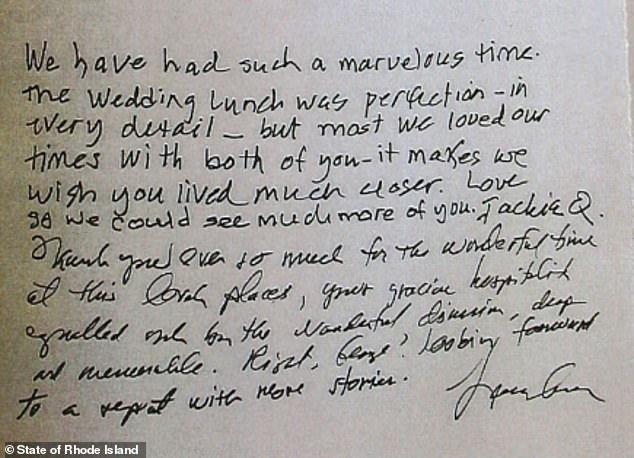 We have had such a marvelous time.
The Wedding Lunch was perfection - in
every detail - but most we loved our
times with both of you - it makes we
wish you lived much closer. Love
so we could see much more of you. Jackie Q.
Thank you ever so much for the wonderful time
at this places, your gracious hospitality
equalled only by the wonderful deep
and memorable. Right, George! Looking forward
to a repeat with more stories.
© State of Rhode Island